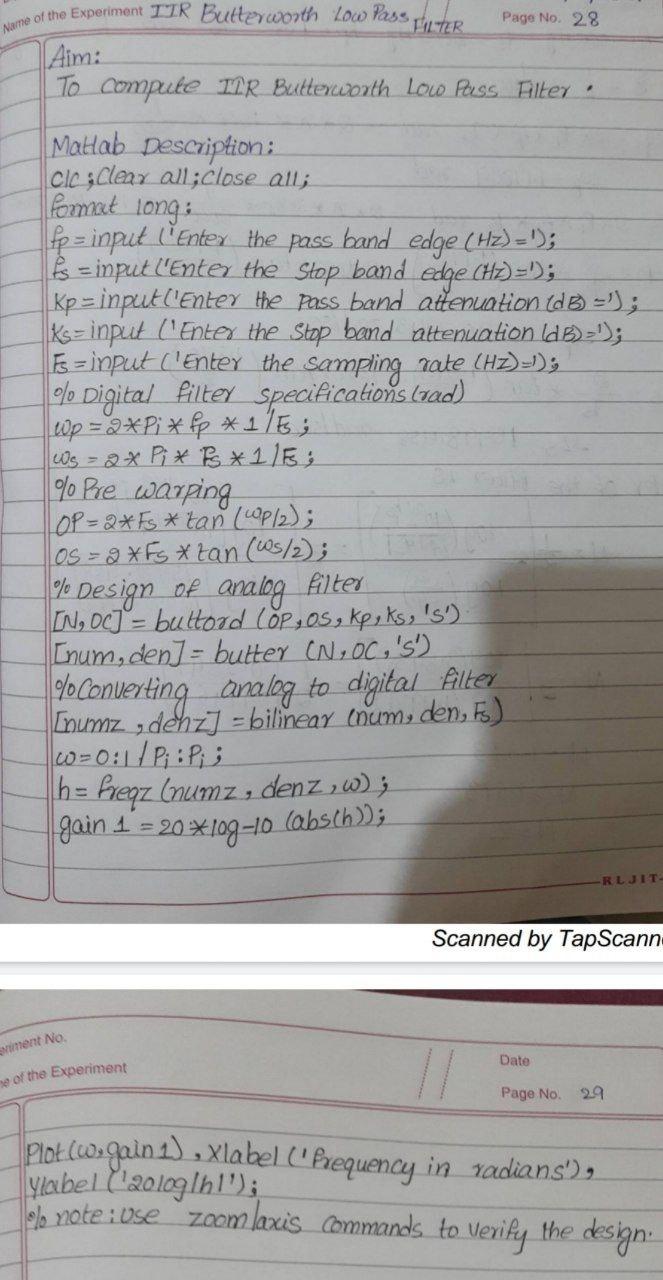 Name of the Experiment IIR Butterworth Low Pass FILTER
Page No. 28
Aim:
To compute IIR Butterworth Low Pass Filter.
Matlab Description:
clc; Clear all; close all;
format long;
fp = input ('Enter the pass band edge (Hz)=');
fs = input ('Enter the stop band edge (Hz)=');
Kp = input ('Enter the pass band attenuation (dB) =');
Ks = input ('Enter the stop band attenuation (dB)=');
Fs = input ('Enter the sampling rate (Hz)=');
% Digital filter specifications (rad)
wp = 2*Pi* fp *1/Fs;
ws = 2* Pi* Fs *1/Fs;
% Pre warping
OP = 2*Fs * tan (wp/2);
OS = 2*Fs * tan (ws/2);
% Design of analog filter
[N, OC] = buttord (OP, OS, Kp, Ks, 's')
[num, den] = butter (N, OC, 's')
% Converting analog to digital filter
[numz, denz] = bilinear (num, den, Fs)
w=0:1/Pi:Pi;
h= freqz (numz, denz, w);
gain 1 = 20*log-10 (abs(h));
RLJIT-
Scanned by TapScann
eriment No.
me of the Experiment
Date
Page No. 29
Plot(w,gain1), Xlabel ('frequency in radians'),
Ylabel ('20log|h|');
% note: use zoom/axis commands to verify the design.